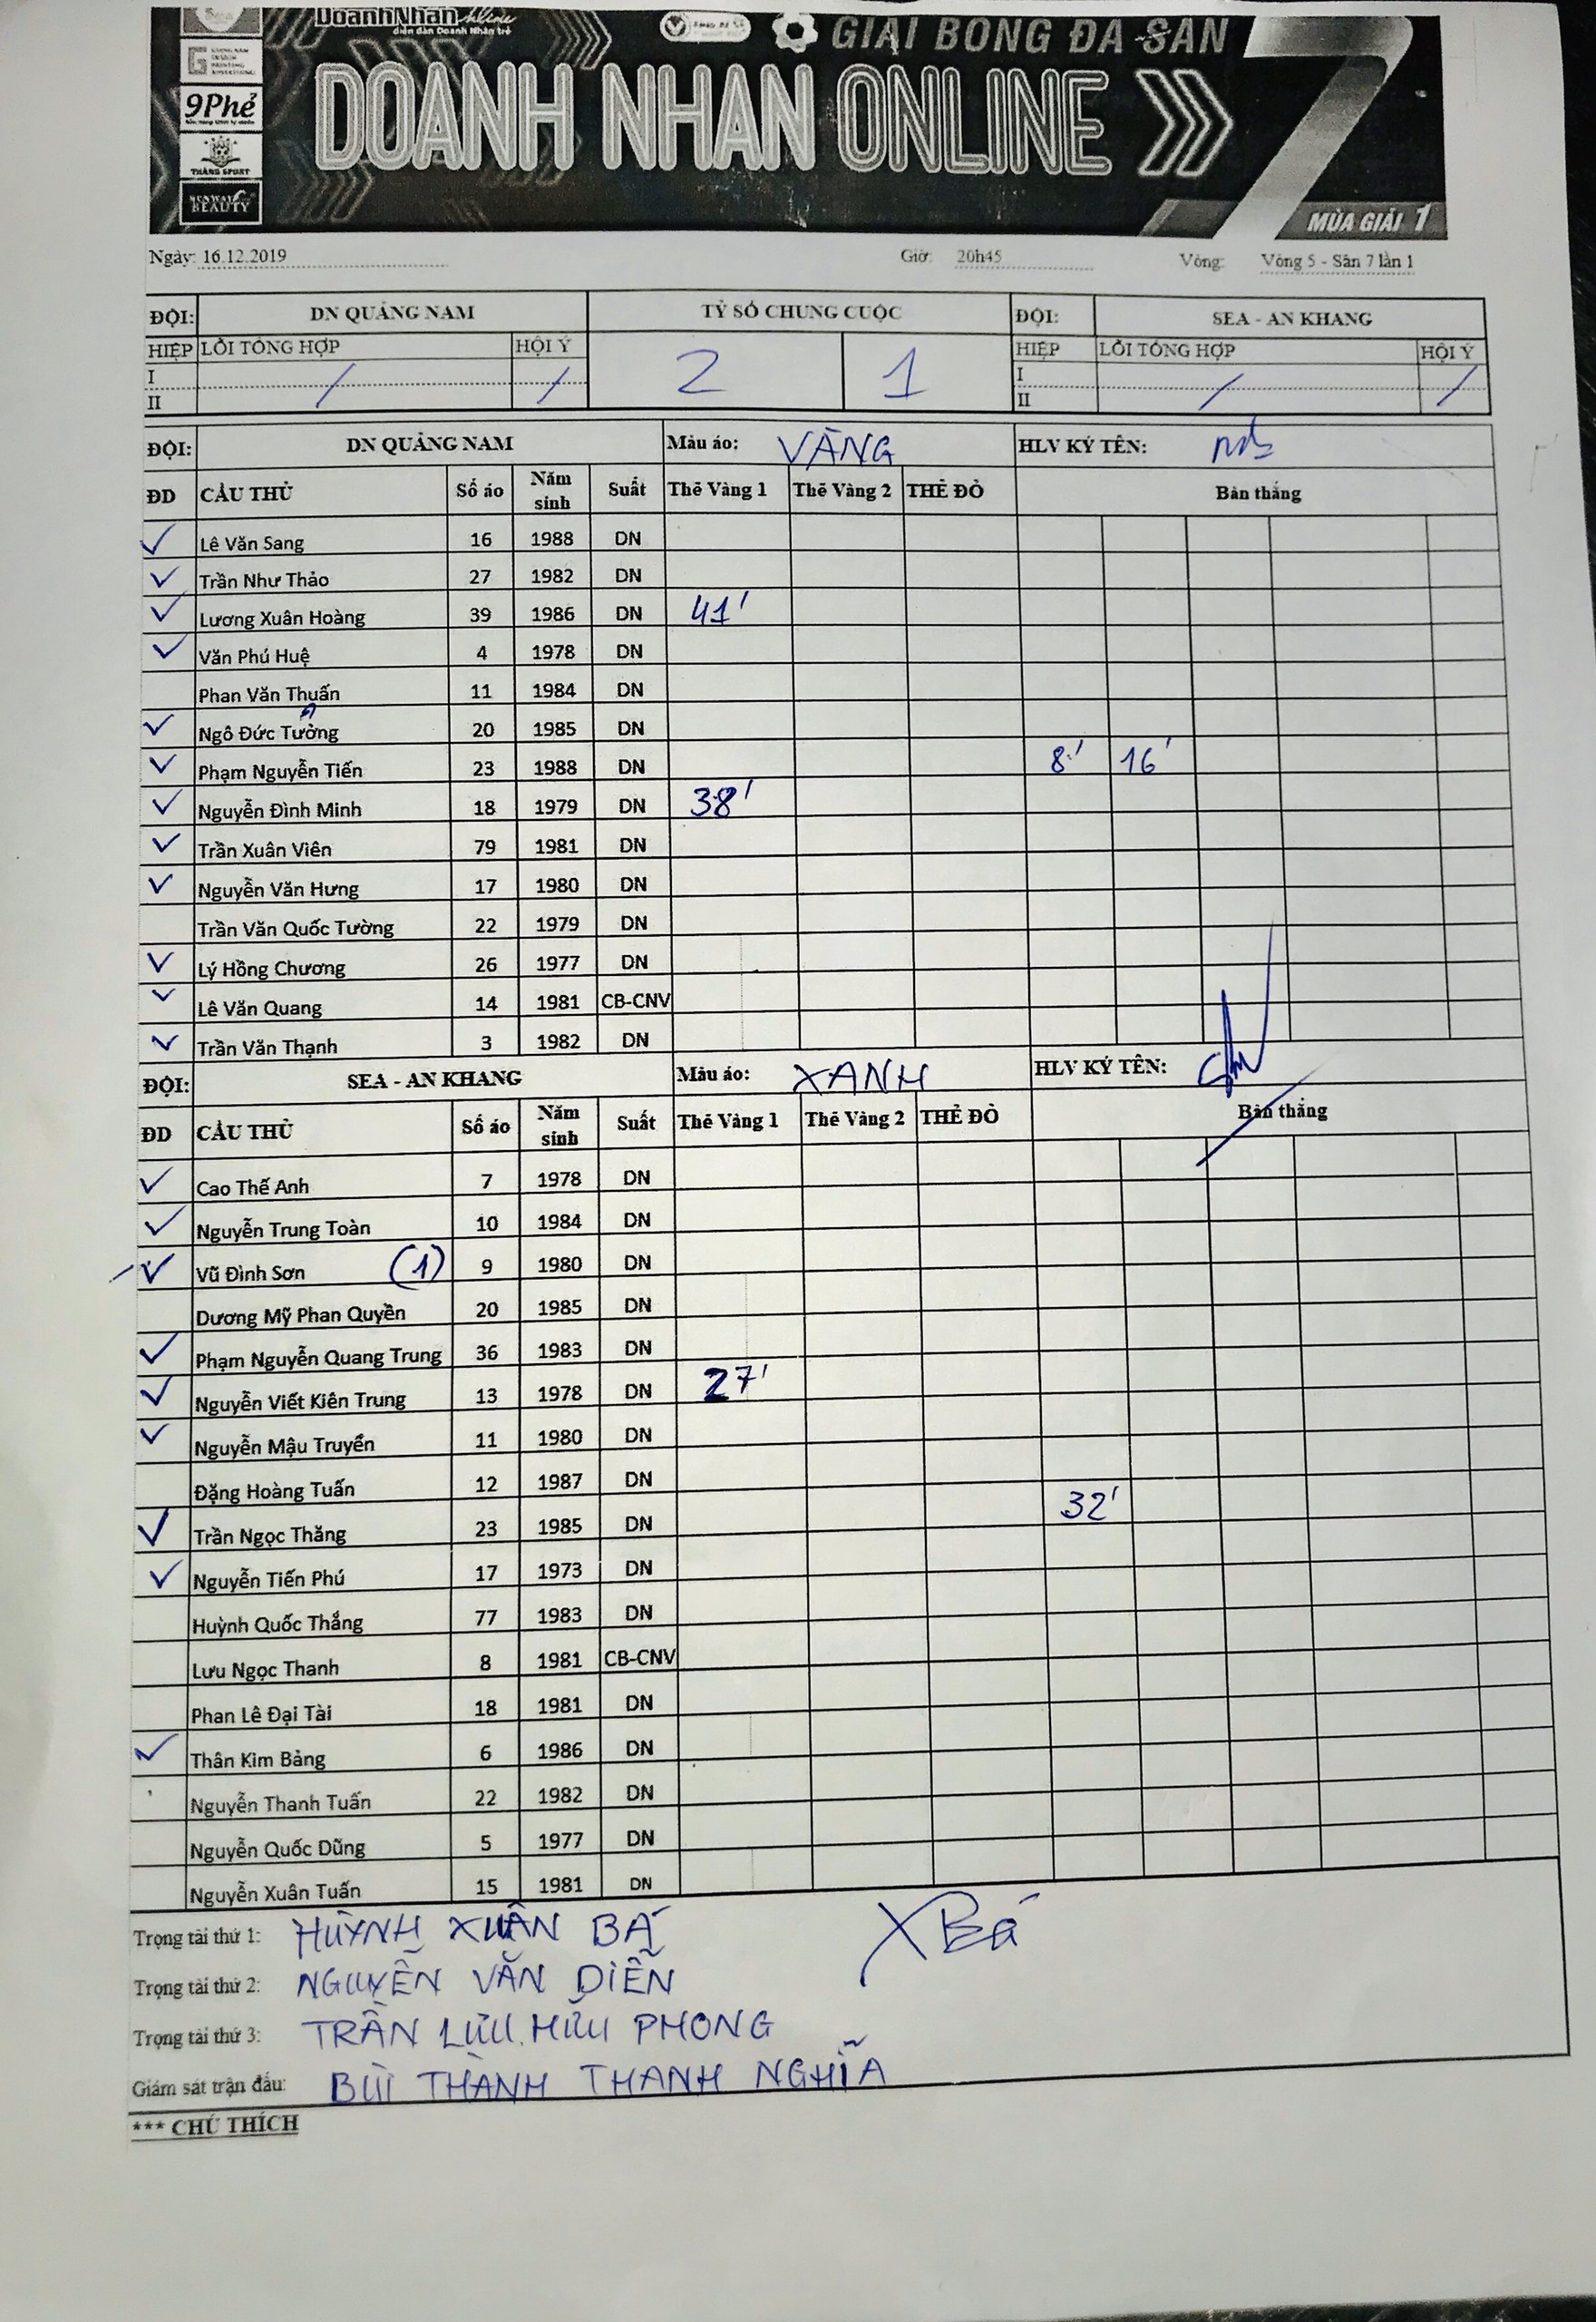 DoanhNhân Online
diễn đàn Doanh Nhân trẻ
GIẢI BÓNG ĐÁ SÂN 7
DOANH NHÂN ONLINE
9Phẻ
THĂNG SPORT
BEAUTY
MÙA GIẢI 1
Ngày: 16.12.2019 Giờ: 20h45 Vòng: Vòng 5 - Sân 7 lần 1
ĐỘI: DN QUẢNG NAM TỶ SỐ CHUNG CUỘC ĐỘI: SEA - AN KHANG
HIỆP LỖI TỔNG HỢP HỘI Ý 2 1 HIỆP LỖI TỔNG HỢP HỘI Ý
I / / I / /
II II
ĐỘI: DN QUẢNG NAM Màu áo: VÀNG HLV KÝ TÊN:
ĐD CẦU THỦ Số áo Năm sinh Suất Thẻ Vàng 1 Thẻ Vàng 2 THẺ ĐỎ Bàn thắng
✓ Lê Văn Sang 16 1988 DN
✓ Trần Như Thảo 27 1982 DN
✓ Lương Xuân Hoàng 39 1986 DN 41'
✓ Văn Phú Huệ 4 1978 DN
Phan Văn Thuấn 11 1984 DN
✓ Ngô Đức Tưởng 20 1985 DN
✓ Phạm Nguyễn Tiến 23 1988 DN 8' 16'
✓ Nguyễn Đình Minh 18 1979 DN 38'
✓ Trần Xuân Viên 79 1981 DN
✓ Nguyễn Văn Hưng 17 1980 DN
Trần Văn Quốc Tường 22 1979 DN
✓ Lý Hồng Chương 26 1977 DN
✓ Lê Văn Quang 14 1981 CB-CNV
✓ Trần Văn Thạnh 3 1982 DN
ĐỘI: SEA - AN KHANG Màu áo: XANH HLV KÝ TÊN:
ĐD CẦU THỦ Số áo Năm sinh Suất Thẻ Vàng 1 Thẻ Vàng 2 THẺ ĐỎ Bàn thắng
✓ Cao Thế Anh 7 1978 DN
✓ Nguyễn Trung Toàn 10 1984 DN
✓ Vũ Đình Sơn (1) 9 1980 DN
Dương Mỹ Phan Quyền 20 1985 DN
✓ Phạm Nguyễn Quang Trung 36 1983 DN
✓ Nguyễn Viết Kiên Trung 13 1978 DN 27'
✓ Nguyễn Mậu Truyền 11 1980 DN
Đặng Hoàng Tuấn 12 1987 DN
✓ Trần Ngọc Thăng 23 1985 DN 32'
✓ Nguyễn Tiến Phú 17 1973 DN
Huỳnh Quốc Thắng 77 1983 DN
Lưu Ngọc Thanh 8 1981 CB-CNV
Phan Lê Đại Tài 18 1981 DN
✓ Thân Kim Bảng 6 1986 DN
Nguyễn Thanh Tuấn 22 1982 DN
Nguyễn Quốc Dũng 5 1977 DN
Nguyễn Xuân Tuấn 15 1981 DN
Trọng tài thứ 1: HUỲNH XUÂN BÁ XBá
Trọng tài thứ 2: NGUYỄN VĂN DIỄN
Trọng tài thứ 3: TRẦN LƯU HỮU PHONG
Giám sát trận đấu: BÙI THÀNH THANH NGHĨA
*** CHÚ THÍCH